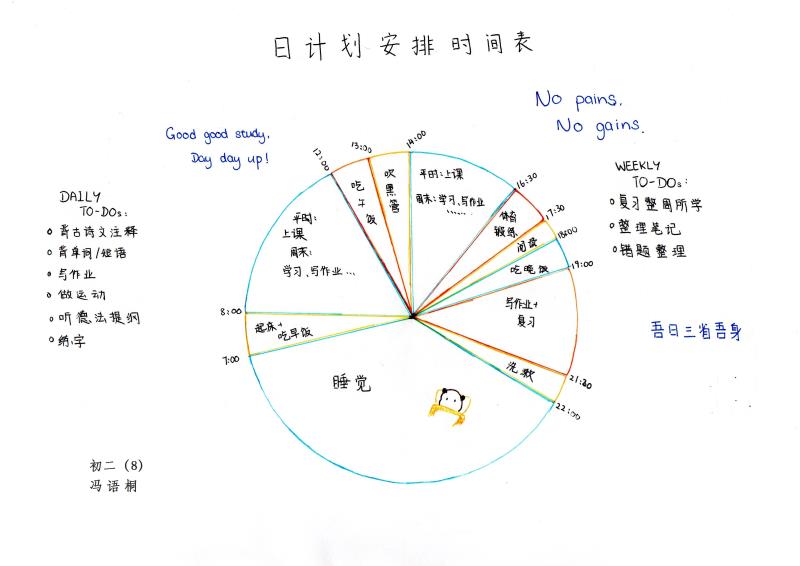 日计划安排时间表
No pains,
No gains.
Good good study,
Day day up!
DAILY
TO-DOs:
背古诗文注释
背单词/短语
写作业
做运动
听德法提纲
练字
WEEKLY
TO-DOs:
复习整周所学
整理笔记
错题整理
吾日三省吾身
12:00
13:00
14:00
16:30
17:30
18:00
19:00
21:30
22:00
7:00
8:00
平时:
上课
周末:
学习、写作业...
吃
午
饭
吹
黑
管
平时:上课
周末:学习、写作业
......
体育
锻炼
阅读
吃晚饭
写作业+
复习
洗漱
睡觉
起床+
吃早饭
初二(8)
冯语桐